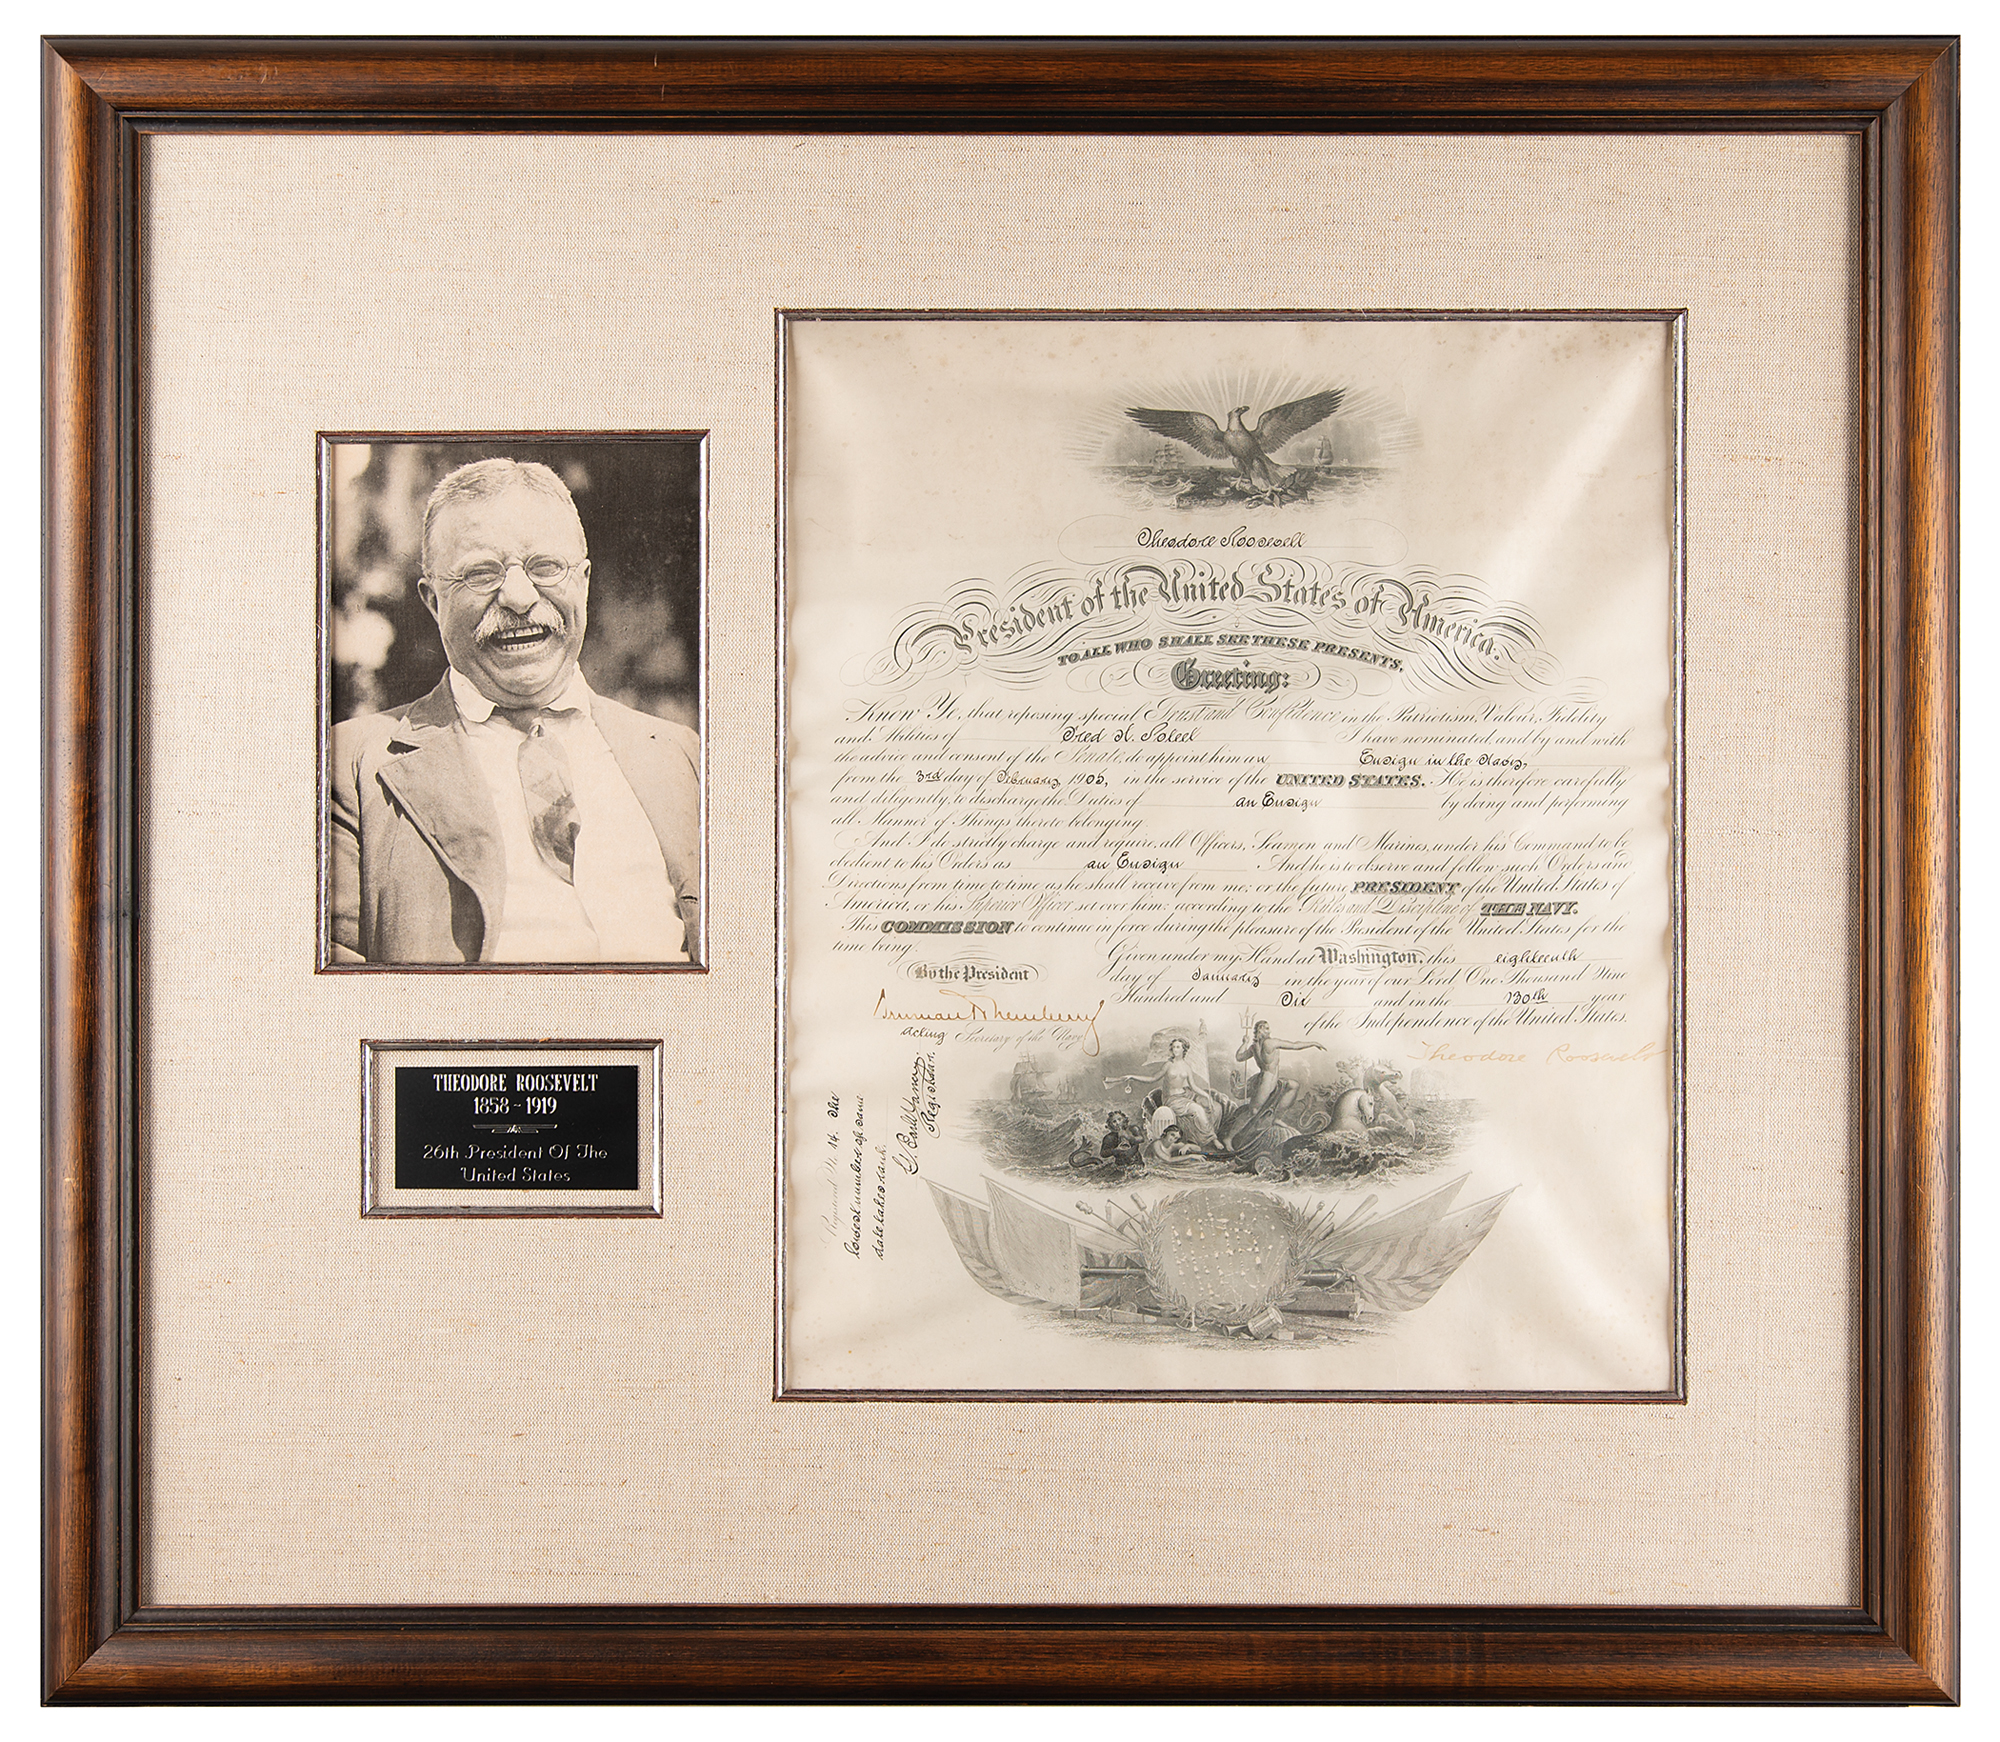 THEODORE ROOSEVELT
1858 ~ 1919
26th President Of The
United States
Theodore Roosevelt
President of the United States of America.
TO ALL WHO SHALL SEE THESE PRESENTS,
Greeting:
Know Ye, that reposing special Trust and Confidence in the Patriotism, Valour, Fidelity
and Abilities of Fred H. Poteet I have nominated, and by and with
the advice and consent of the Senate, do appoint him an Ensign in the Navy,
from the 3rd day of February, 1905, in the service of the UNITED STATES. He is therefore carefully
and diligently to discharge the Duties of an Ensign by doing and performing
all Manner of Things thereto belonging.
And I do strictly charge and require, all Officers, Seamen and Marines, under his Command to be
obedient to his Orders as an Ensign And he is to observe and follow such Orders and
Directions from time to time as he shall receive from me, or the future PRESIDENT of the United States of
America, or his Superior Officer set over him, according to the Rules and Discipline of THE NAVY.
This COMMISSION to continue in force during the pleasure of the President of the United States for the
time being.
Given under my Hand at Washington, this eighteenth
day of January in the year of our Lord One Thousand Nine
Hundred and Six and in the 130th year
of the Independence of the United States.
By the President
Truman H Newberry
Acting Secretary of the Navy
Theodore Roosevelt
Registered No. 14. The
lowest number of same
date takes rank.
Registrar.